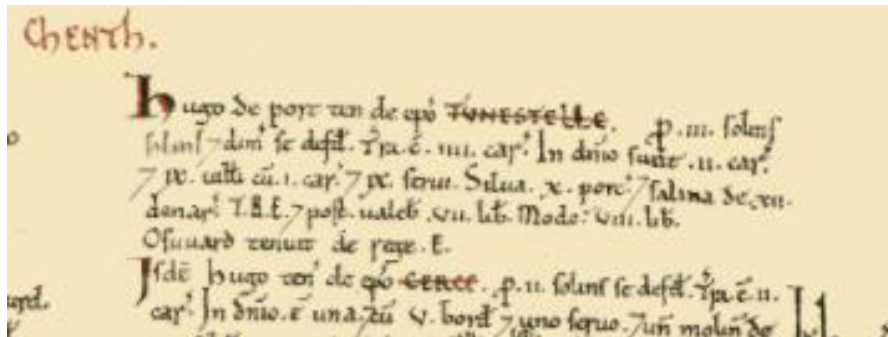 Chenth.
Hugo de port ten̄ de ep̄o TUNESTELLE. p. iii. solins
solins ⁊ dim' se defd'. T'ra. ē. iiii. car'. In dn̄io sunt. ii. car'
⁊ ix. uilli cū. i. car' ⁊ ix. serui. Silua. x. porc'. ⁊ salina de. xii.
denar'. T.R.E. ⁊ post. ualeb'. vii. lib'. Modo: viii. lib'.
Osuuard tenuit de rege. E.
Isdē hugo ten' de ep̄o CERCE. p. ii. solins se defd'. T'ra. ē. ii.
car'. In dn̄io. ē una. ⁊ cū v. bord' ⁊ uno seruo. ⁊ un̄ molin̄ de